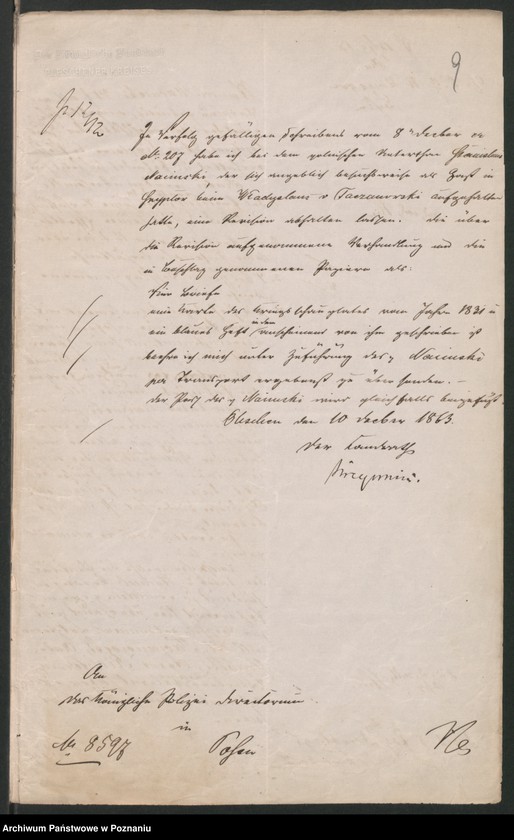 9
pr 12/12
In Verfolg gefälligen Schreibens vom 8 Decber cr
No. 207 habe ich bei dem polnischen Unterthan Stanislaus
Naimski der sich angeblich besuchsweise als Gast in
bei Wladyslaus v Taczanowski aufgehalten
hatte, eine Revision abhalten lassen. Die über
die Revision aufgenommene Verhandlung und die
in Beschlag genommenen Papiere als:
Vier Briefe
eine Karte des Kriegsschauplatzes vom Jahre 1831 u
ein blaues Heft, anscheinend von ihm geschrieben ist
beehre ich mich unter Zuführung des p Naimski
per Transport ergebenst zu übersenden.
der Paß des p Naimski wird gleichfalls beigefügt
Pleschen den 10 Decber 1863.
Der Landrath
An
das Königliche Polizei Directorium
in
No 8597 Posen
Archiwum Państwowe w Poznaniu